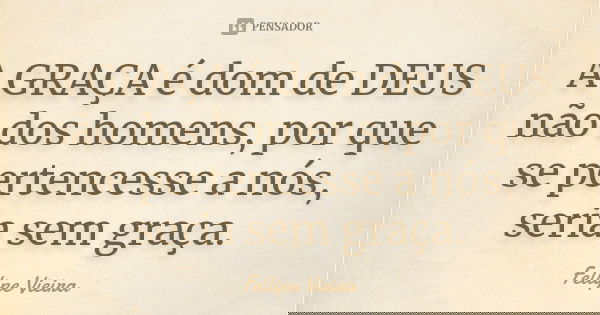 PENSADOR
A GRAÇA é dom de DEUS
não dos homens, por que
se pertencesse a nós,
seria sem graça.
Fellipe Vieira